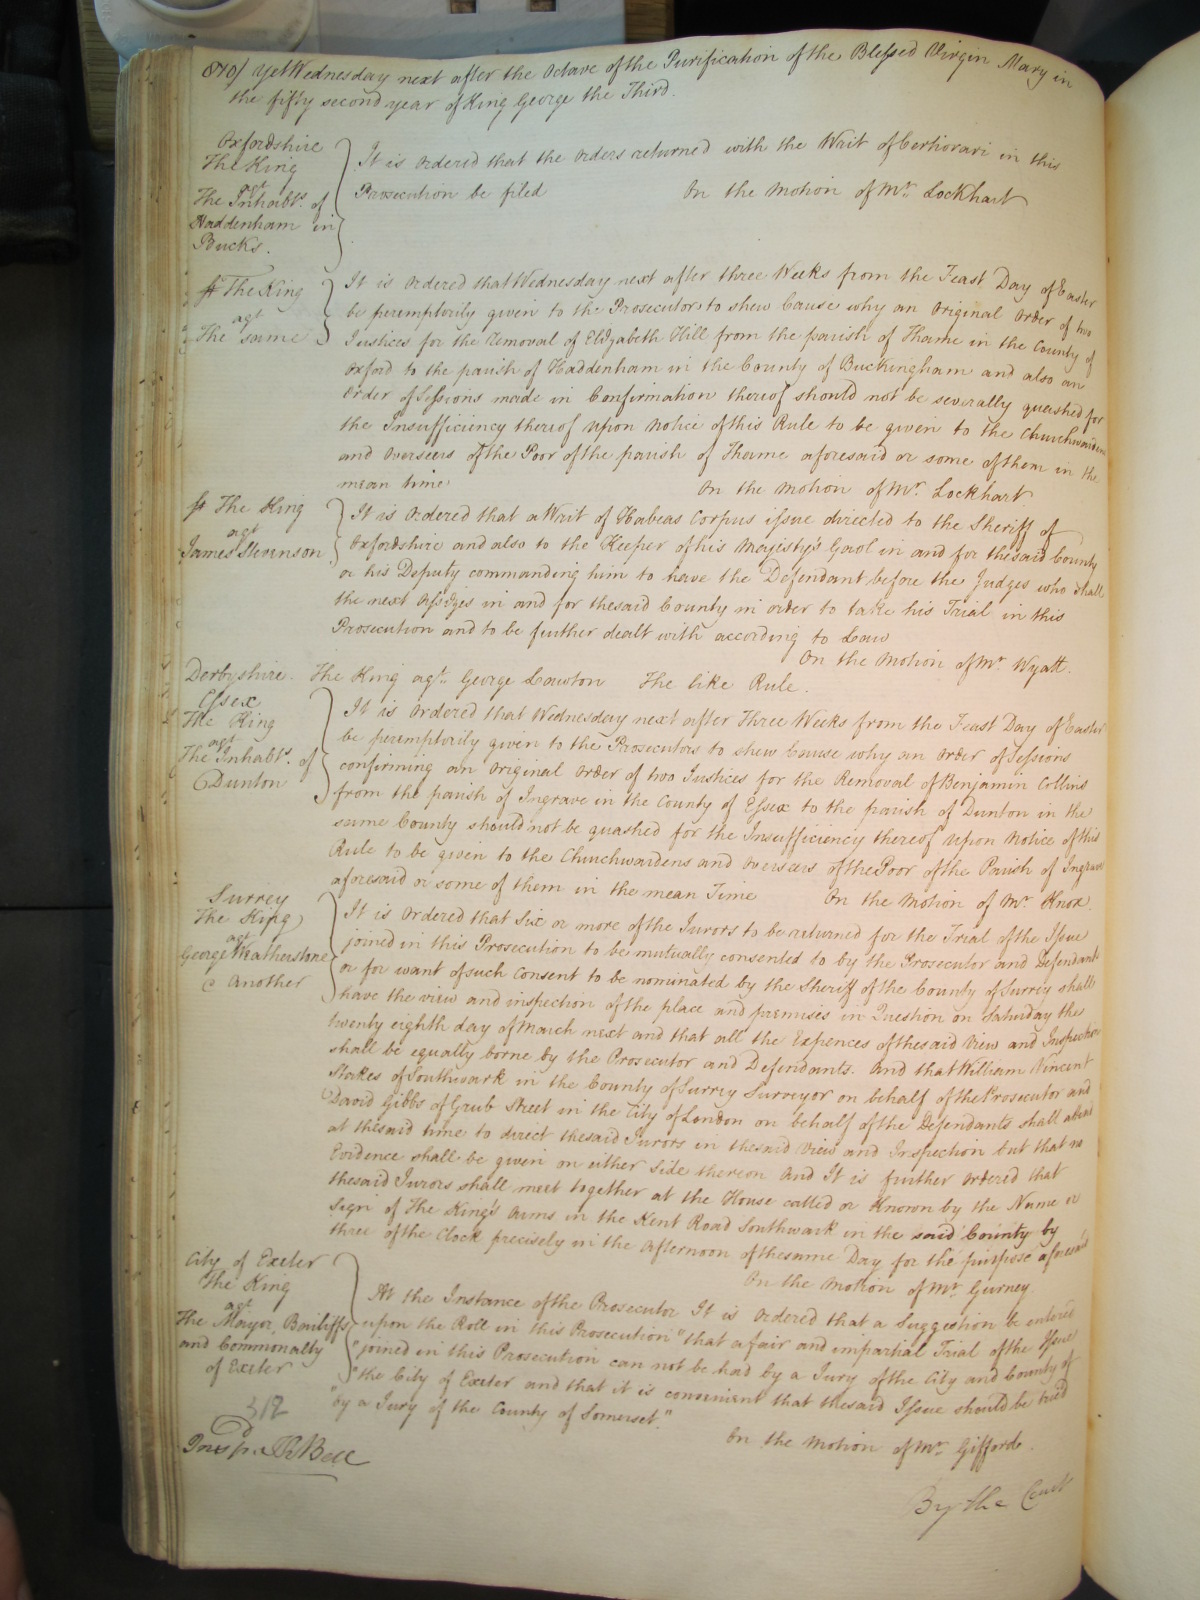 870/ Yet Wednesday next after the Octave of the Purification of the Blessed Virgin Mary in
the fifty second year of King George the Third.
Oxfordshire
The King
agt
The Inhabts. of
Haddenham in
Bucks.
It is ordered that the orders returned with the Writ of Certiorari in this
Prosecution be filed
On the Motion of Mr. Lockhart
The King
agt
The same
It is ordered that Wednesday next after three Weeks from the Feast Day of Easter
be peremptorily given to the Prosecutors to shew Cause why an Original Order of two
Justices for the removal of Elizabeth Hill from the parish of Thame in the County of
Oxford to the parish of Haddenham in the County of Buckingham and also an
Order of Sessions made in Confirmation thereof should not be severally quashed for
the Insufficiency thereof upon notice of this Rule to be given to the Churchwardens
and Overseers of the Poor of the parish of Thame aforesaid or some of them in the
mean time
On the Motion of Mr. Lockhart
The King
agt
James Stevenson
It is ordered that a Writ of Habeas Corpus issue directed to the Sheriff of
Oxfordshire and also to the Keeper of his Majesty's Gaol in and for the said County
or his Deputy commanding him to have the Defendant before the Judges who shall
the next Assizes in and for the said County in order to take his Trial in this
Prosecution and to be further dealt with according to Law
On the Motion of Mr. Wyatt.
Derbyshire. The King agt. George Lawton The like Rule.
Essex
The King
agt
The Inhabts. of
Dunton
It is ordered that Wednesday next after Three Weeks from the Feast Day of Easter
be peremptorily given to the Prosecutors to shew Cause why an Order of Sessions
confirming an Original Order of two Justices for the Removal of Benjamin Collins
from the parish of Ingrave in the County of Essex to the parish of Dunton in the
same County should not be quashed for the Insufficiency thereof upon Notice of this
Rule to be given to the Churchwardens and Overseers of the Poor of the Parish of Ingrave
aforesaid or some of them in the mean Time
On the Motion of Mr. Knox.
Surrey
The King
agt
George Weatherstone
& Another
It is Ordered that Six or more of the Jurors to be returned for the Trial of the Issue
joined in this Prosecution to be mutually consented to by the Prosecutor and Defendants
or for want of such Consent to be nominated by the Sheriff of the County of Surrey shall
have the view and inspection of the place and premises in Question on Saturday the
twenty eighth day of March next and that all the Expences of the said View and Inspection
shall be equally borne by the Prosecutor and Defendants. And that William Vincent
Stokes of Southwark in the County of Surrey Surveyor on behalf of the Prosecutor and
David Gibbs of Grub Street in the City of London on behalf of the Defendants shall attend
at the said time to direct the said Jurors in the said View and Inspection but that no
Evidence shall be given on either side thereon And It is further ordered that
the said Jurors shall meet together at the House called or known by the Name or
Sign of The King's Arms in the Kent Road Southwark in the said County by
three of the Clock precisely in the afternoon of the same Day for the purpose aforesaid
On the Motion of Mr. Gurney.
City of Exeter
The King
agt
The Mayor, Bailiffs
and Commonalty
of Exeter
At the Instance of the Prosecutor It is ordered that a Suggestion be entered
upon the Roll in this Prosecution "that a fair and impartial Trial of the Issue
"joined in this Prosecution can not be had by a Jury of the City and County of
"the City of Exeter and that it is convenient that the said Issue should be tried
"by a Jury of the County of Somerset."
On the Motion of Mr. Gifford.
Bell
By the Court